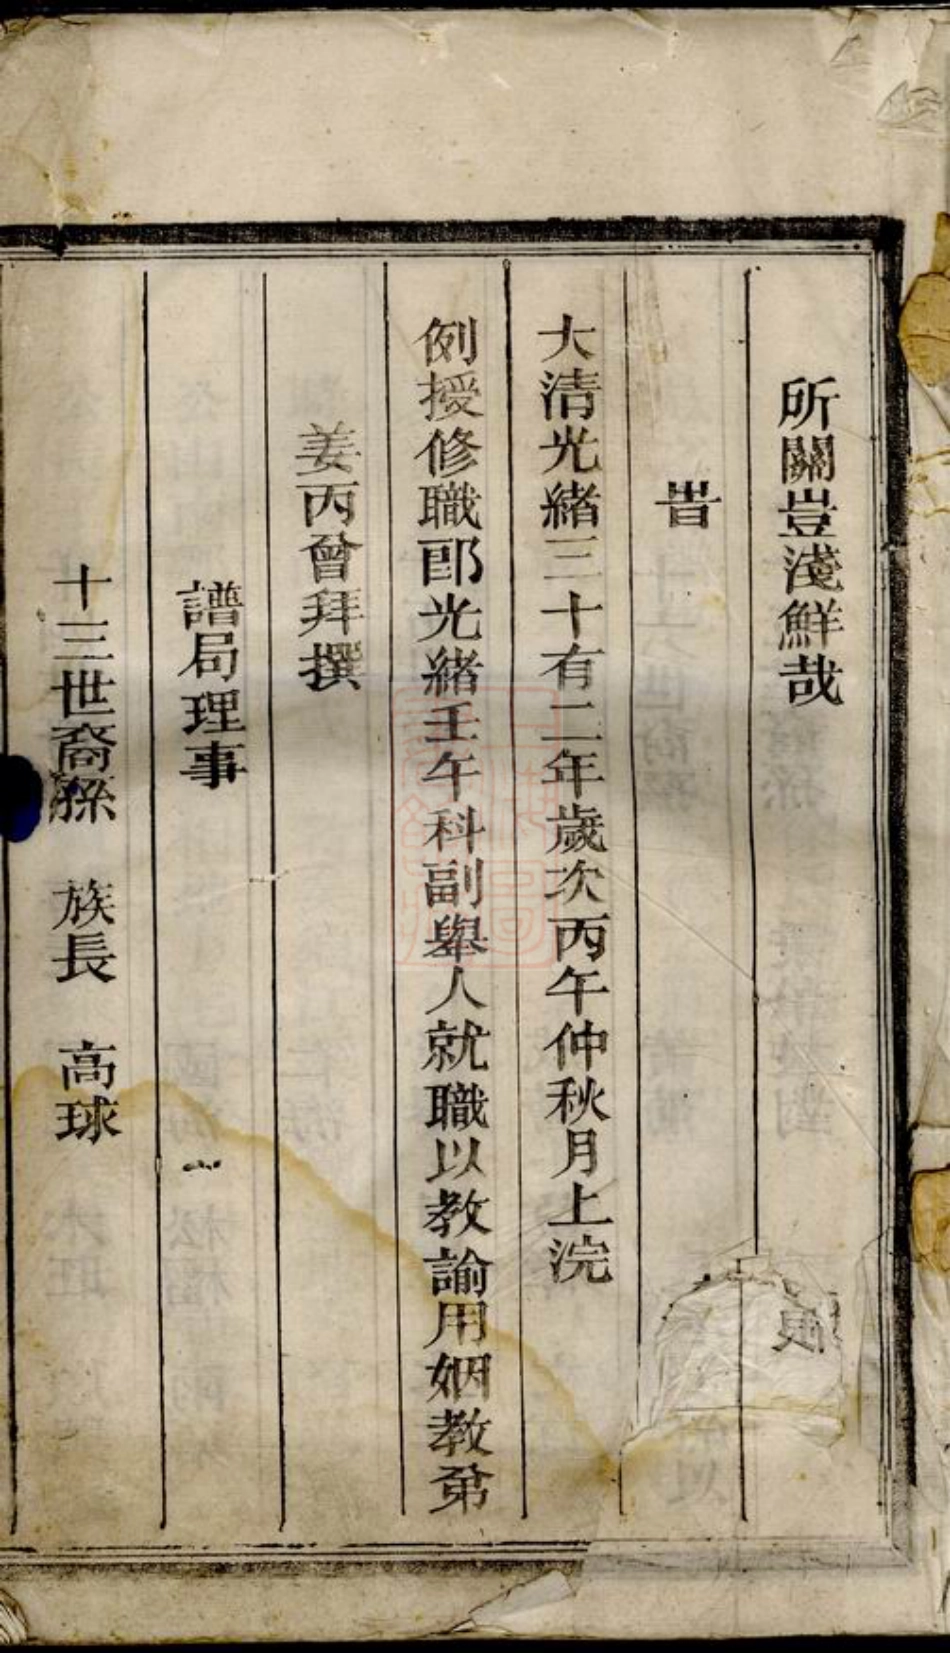 所關豈淺鮮哉
旹
大清光緒三十有二年歲次丙午仲秋月上浣
例授修職郎光緒壬午科副舉人就職以教諭用姻教弟
姜丙曾拜撰
譜局理事
十三世裔孫　族長　高球